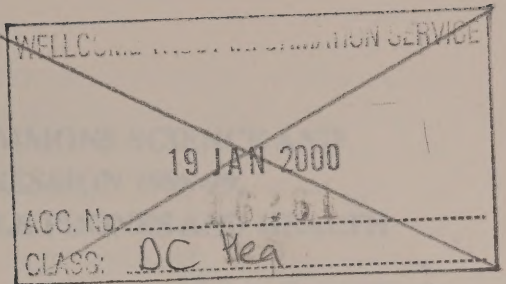 WELLCOME TRUST INFORMATION SERVICE
19 JAN 2000
ACC. No.
CLASS: DC Hea